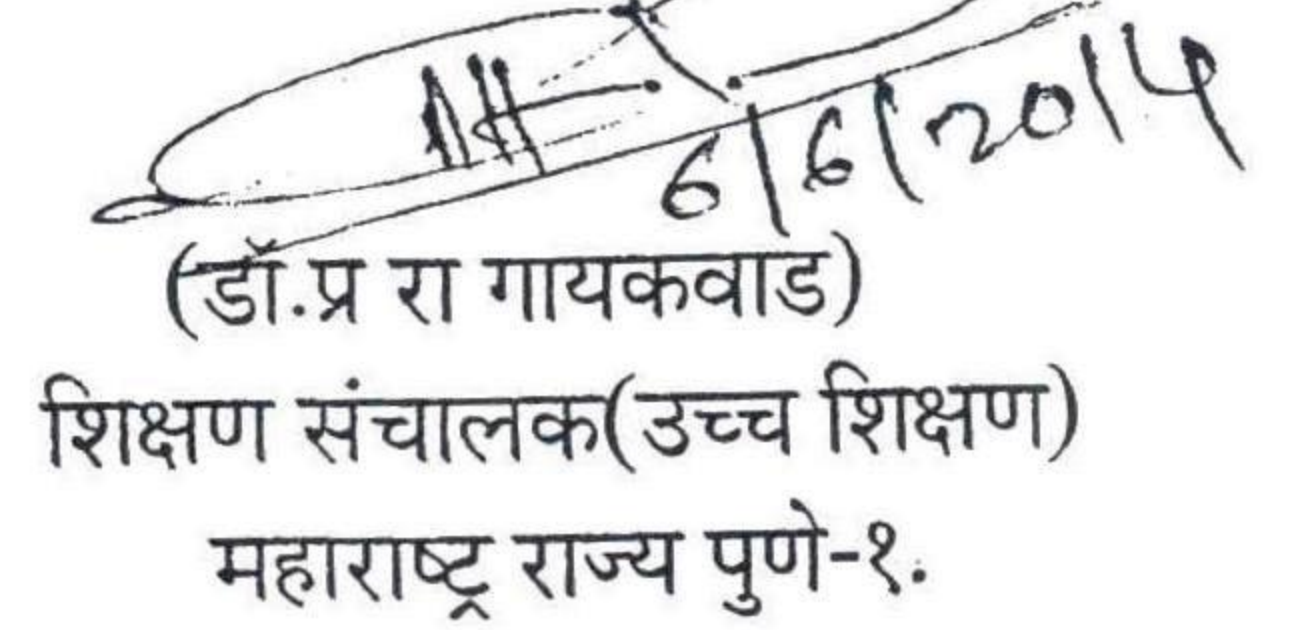 6/6/2014
(डॉ.प्र रा गायकवाड)
शिक्षण संचालक(उच्च शिक्षण)
महाराष्ट्र राज्य पुणे-१.